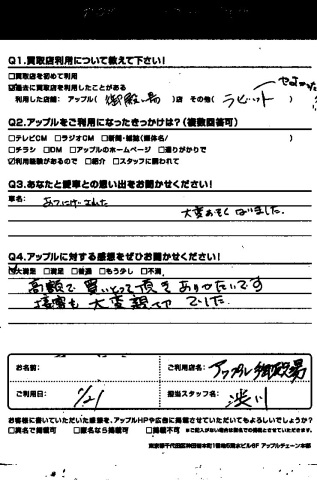 Q1.買取店利用について教えて下さい!
□買取店を初めて利用
☑過去に買取店を利用したことがある
利用した店舗: アップル( 御殿場 )店 その他( ラビット )
Q2.アップルをご利用になったきっかけは?(複数回答可)
□テレビCM □ラジオCM □新聞・雑誌(媒体名/ )
□チラシ □DM □アップルのホームページ □通りがかりで
☑利用経験があるので □紹介 □スタッフに誘われて
Q3.あなたと愛車との思い出をお聞かせください!
車名:
大変あそくなりました.
Q4.アップルに対する感想をぜひお聞かせください!
☑大満足 □満足 □普通 □もう少し □不満
高額で買いとって頂きありがたいです
接客も大変親切でした.
お名前:
ご利用店名: アップル御殿場
ご利用日: 7/21
担当スタッフ名: 渋川
お客様に書いていただいた感想を、アップルHPや広告に掲載させていただいてもよろしいでしょうか?
□実名で掲載可 □匿名なら掲載可 □掲載不可 ※ご記入がない場合は匿名での掲載とさせていただきます。